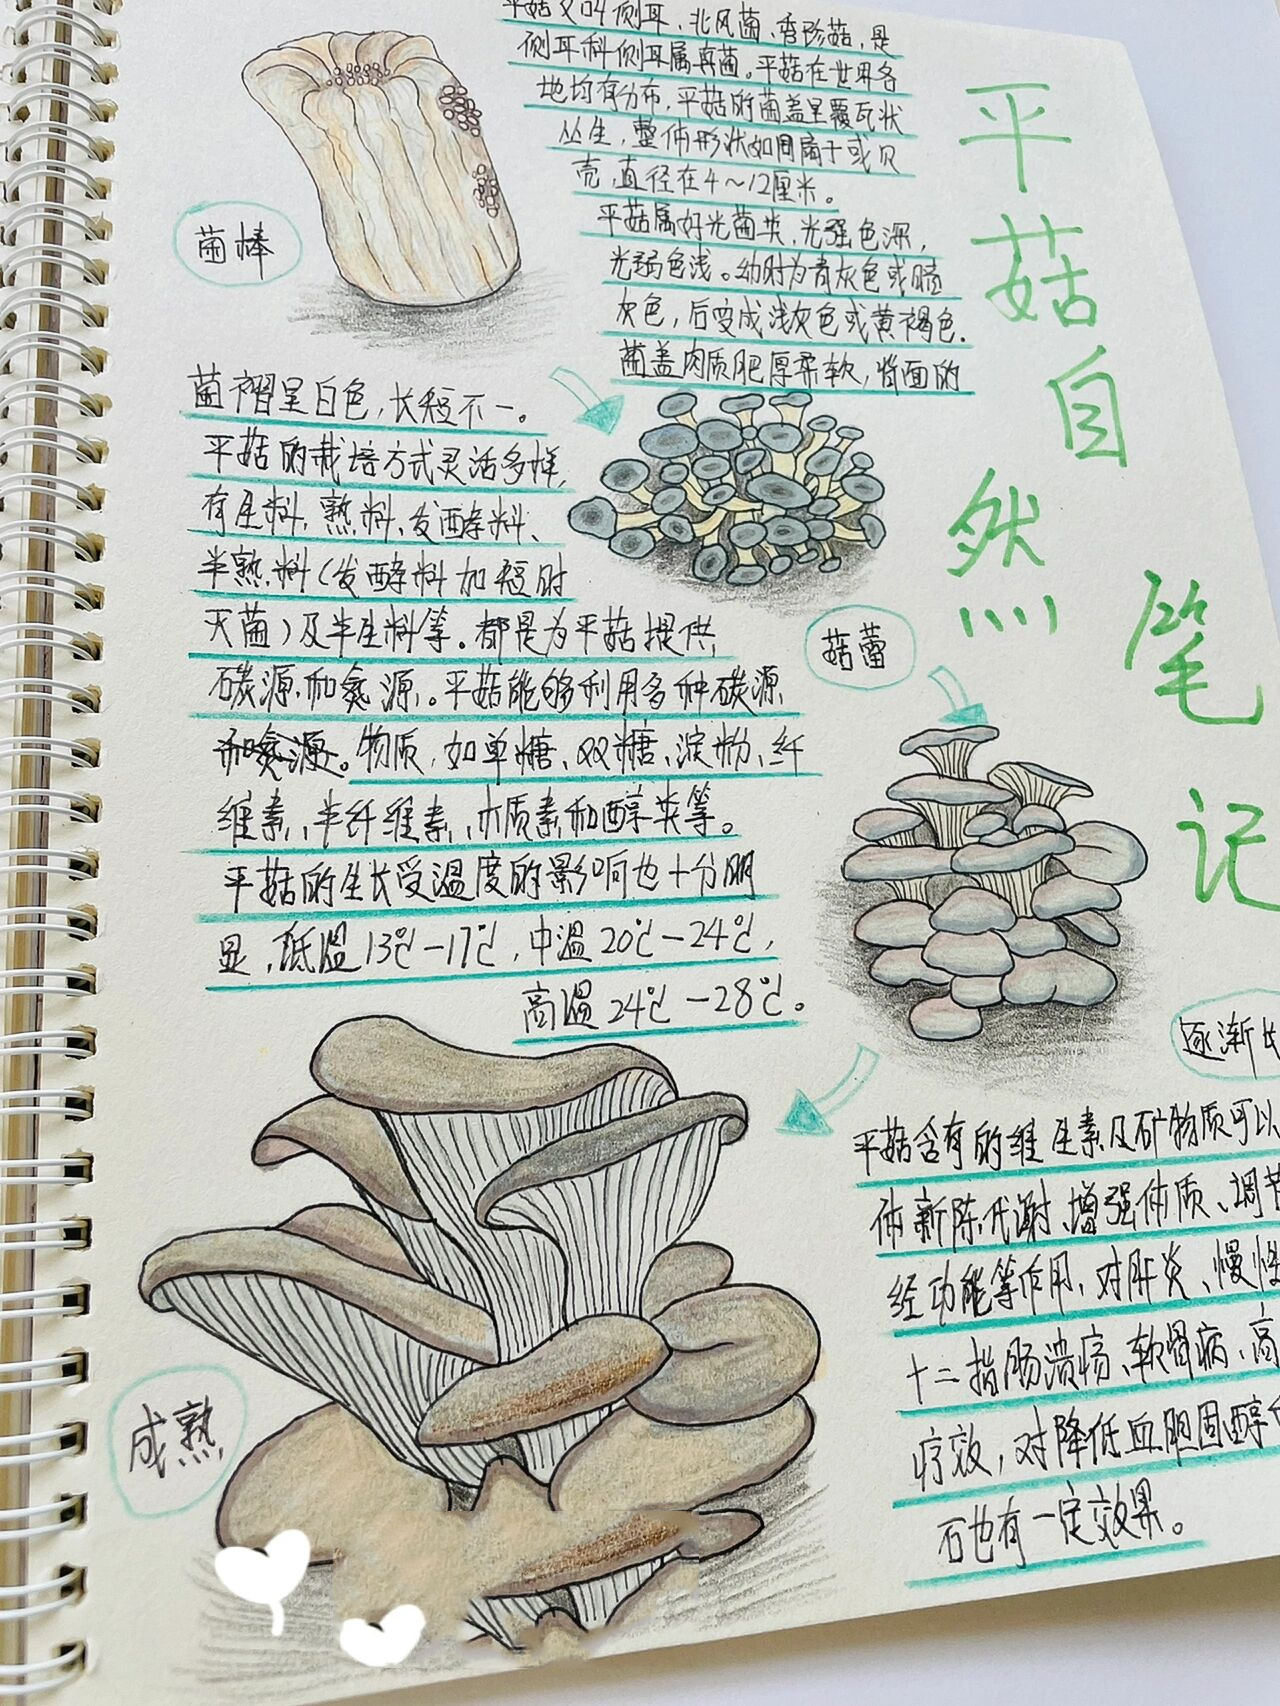 平菇自然笔记
平菇又叫侧耳、北风菌、秀珍菇，是
侧耳科侧耳属真菌。平菇在世界各
地均有分布，平菇的菌盖呈覆瓦状
丛生，整体形状如同扇子或贝
壳，直径在4～12厘米。
平菇属好光菌类，光强色深，
光弱色浅。幼时为青灰色或暗
灰色，后变成浅灰色或黄褐色.
菌盖肉质肥厚柔软，背面的
菌棒
菌褶呈白色，长短不一。
平菇的栽培方式灵活多样，
有生料、熟料、发酵料、
半熟料（发酵料加短时
灭菌）及半生料等。都是为平菇提供
碳源和氮源。平菇能够利用多种碳源
和氮源。物质，如单糖、双糖、淀粉、纤
维素、半纤维素、木质素和醇类等。
平菇的生长受温度的影响也十分明
显，低温13℃－17℃，中温20℃－24℃，
高温24℃－28℃。
菇蕾
逐渐长
成熟
平菇含有的维生素及矿物质可以
体新陈代谢、增强体质、调节
经功能等作用，对肝炎、慢性
十二指肠溃疡、软骨病、高
疗效，对降低血胆固醇
石也有一定效果。